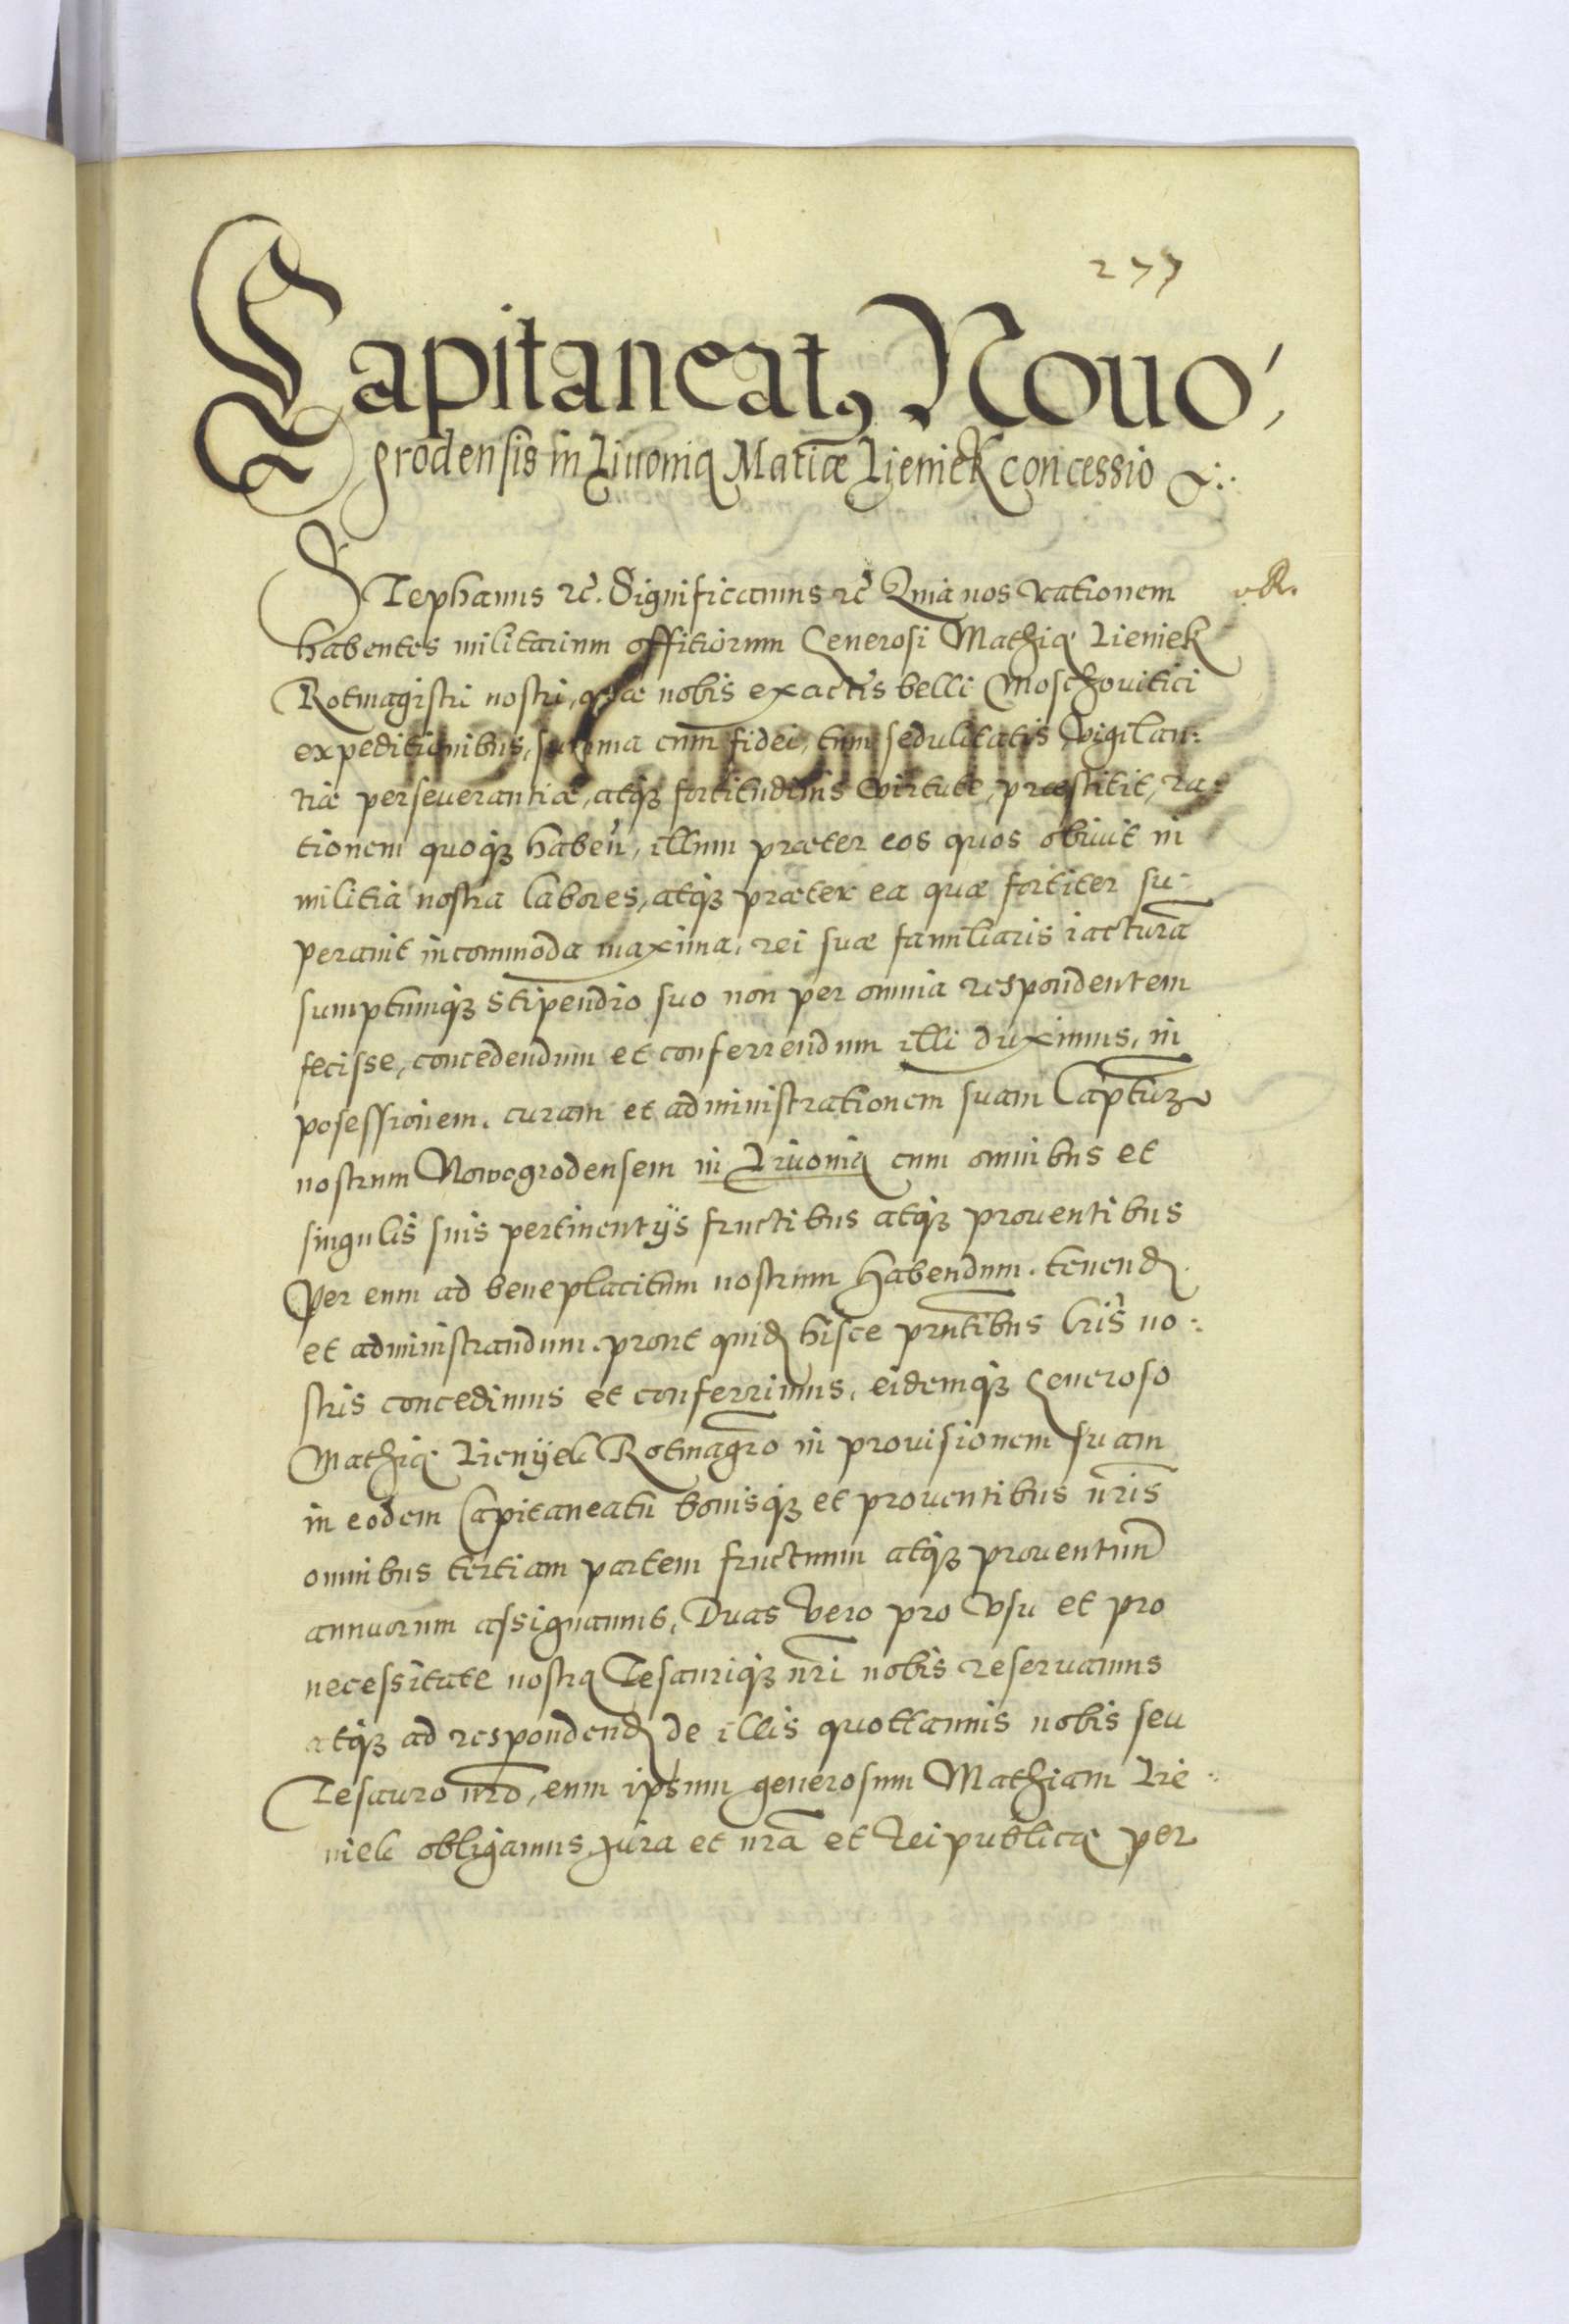 277
Capitaneatꝰ Nouo,
grodensis in Livonia Matiæ Lieniek concessio
Stephanus ꝛc̃. Significamus ꝛc̃ Quia nos rationem
habentes militarium offitiorum Generosi Mathię Lieniek
Rotmagistri nostri, quæ nobis exactis belli Moschouitici
expeditionibus, summa cum fidei, tum sedulitatis vigilan:
tiæ perseverantiæ, atqꝫ fortitudinis virtute, præstitit, ra:
tionem quoqꝫ haben̄, illum præter eos quos obivit in
militia nostra labores, atqꝫ præter ea quæ fortiter su-
peravit incommoda maxima, rei suæ familiaris iacturā
sumptumqꝫ stipendio suo non per omnia respondentem
fecisse, concedendum et conferrendum illi duximus, in
posessionem, curam et administrationem suam Captum
nostrum Nowogrodensem in Livonia cum omnibus et
singulis suis pertinentijs fructibus atqꝫ proventibus
Per eum ad beneplacitum nostrum habendum. tenend.
et administrandum. prout quid hisce prntibus Lris no:
stris concedimus et conferrimus, eidemqꝫ Generoso
Mathię Lienijek Rotmagro in provisionem suam
in eodem Capitaneatu bonisqꝫ et proventibus nr̃is
omnibus tertiam partem fructuum atqꝫ proventuum
annuorum assignamus, Duas vero pro vsu et pro
necessitate nostra Tesauriqꝫ nr̃i nobis reservamus
atqꝫ ad respondend de illis quottannis nobis seu
Tesauro nr̃o, eum ipsum generosum Mathiam Lie:
niek obligamus, jura et nr̃a et Reipublicę per